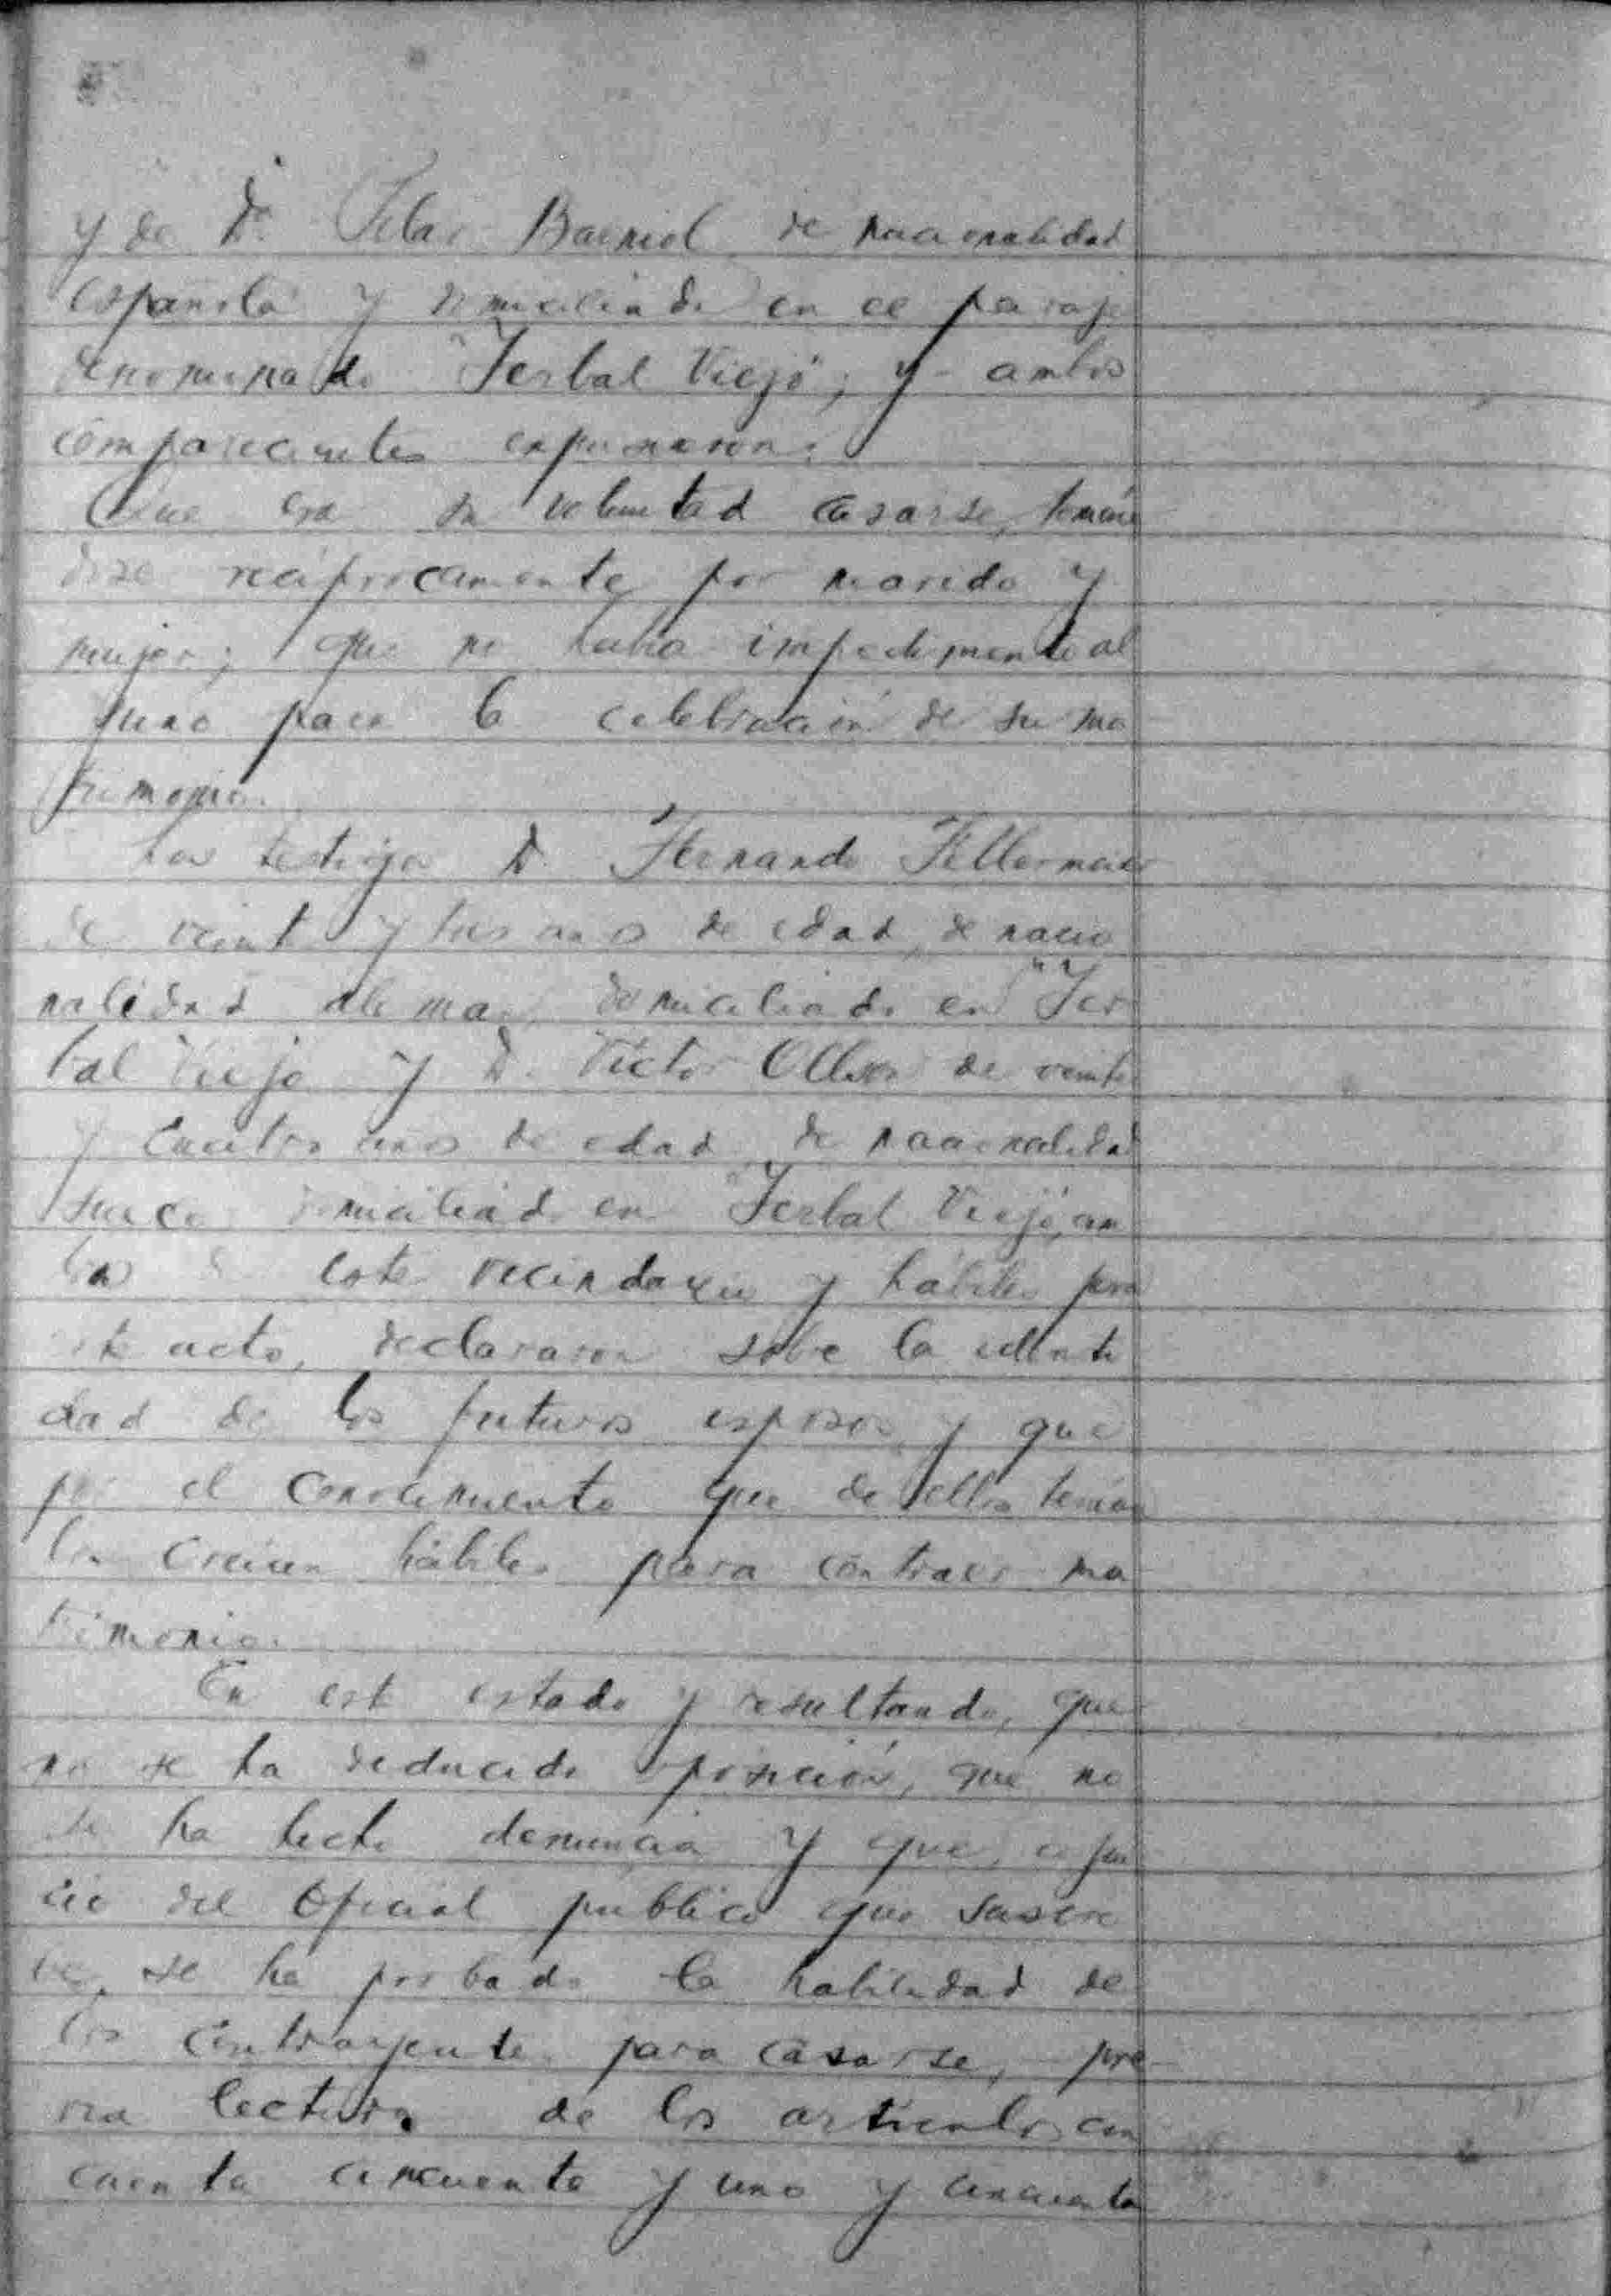 y de Dª Pilar Barniol de nacionalidad
española y domiciliada en el paraje
denominado "Yerbal Viejo"; y ambos
comparecientes expusieron:
Que era su voluntad casarse, tomán
dose recíprocamente por marido y
mujer; que no había impedimento al
guno para la celebración de su ma
trimonio.
Los testigos D. Fernando Fellermeier
de veint y tres años de edad, de nacio
nalidad alemán, domiciliado en "Yer
bal Viejo y D. Víctor Ollson de veinte
y cuatro años de edad, de nacionalidad
sueco domiciliado en Yerbal Viejo, am
bos de este vecindario y hábiles para
este acto, declararon sobre la identi
dad de los futuros esposos y que
por el conocimiento que de ellos tenían
los creían hábiles para contraer ma
trimonio.
En este estado y resultando, que
no se ha deducido oposición, que no
se ha hecho denuncia y que, a jui
cio del Oficial público que suscri
be, se ha probado la habilidad de
los contrayentes para casarse, pre
via lectura de los artículos cin
cuenta cincuenta y uno y cincuenta